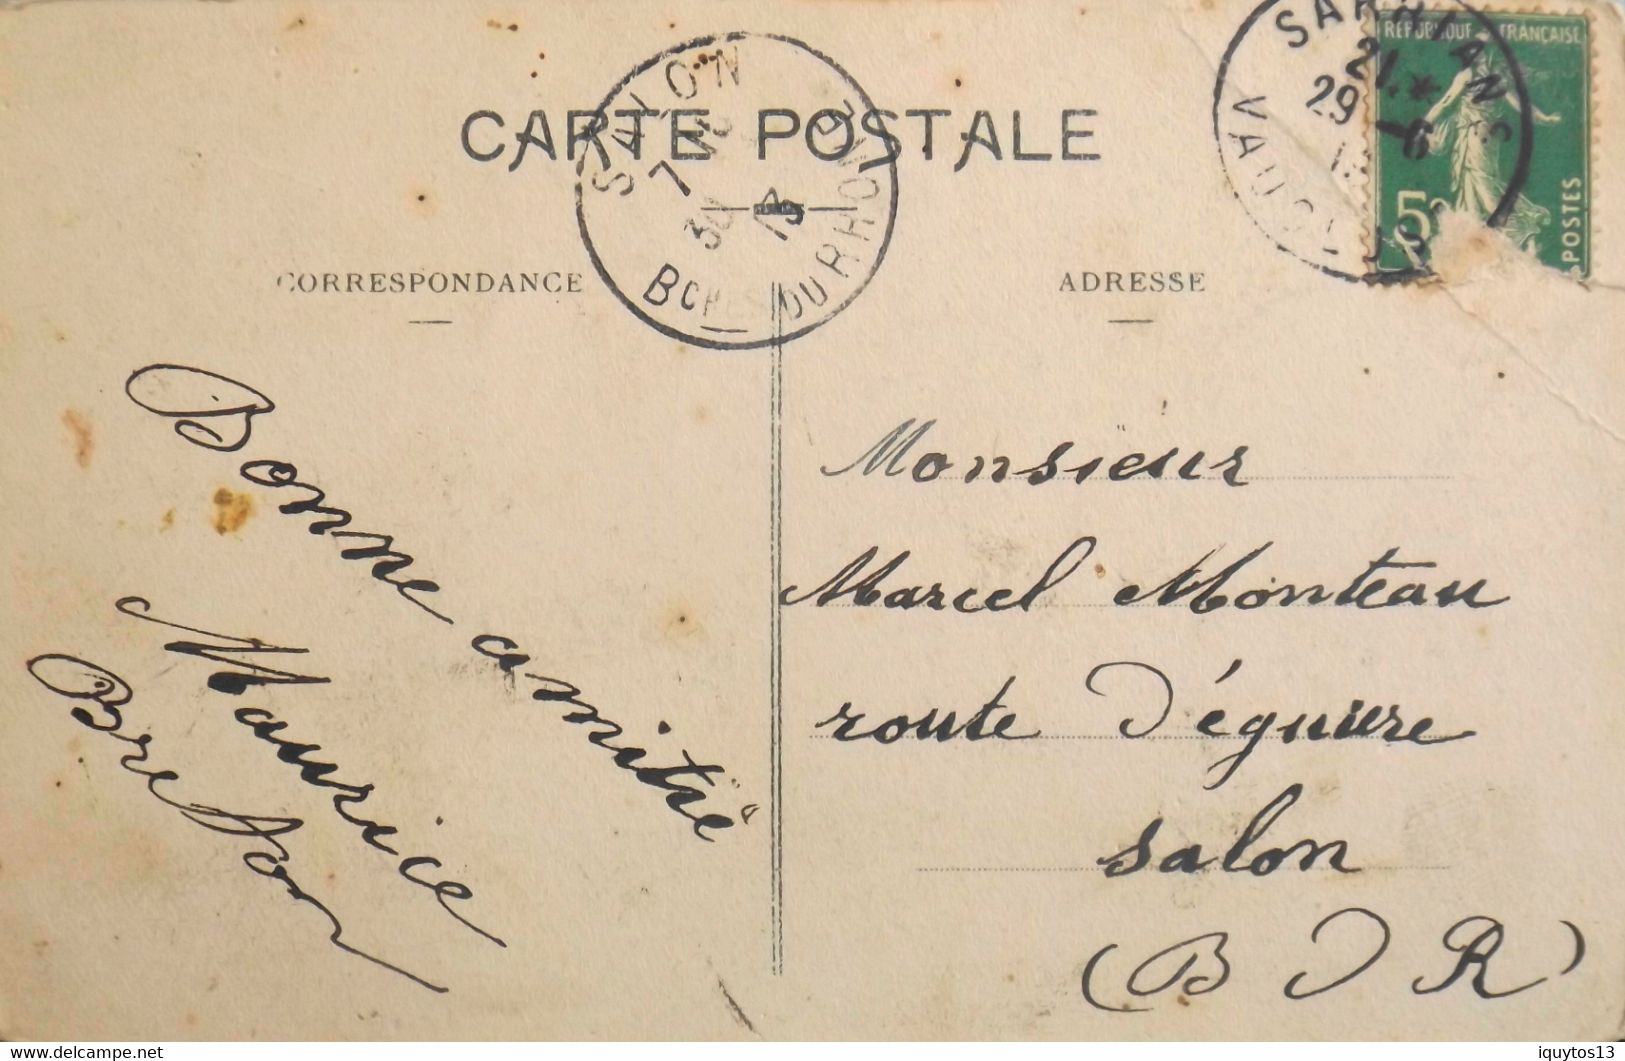 CARTE POSTALE
CORRESPONDANCE
ADRESSE
SALON
7
30 13
BCHES DU RHONE
SARRIANS
21 *
29 -6
VAUCLUSE
REPUBLIQUE FRANÇAISE
5c
POSTES
Bonne amitié
Maurice
Breton
Monsieur
Marcel Monteau
route d'éguiere
salon
(B D R)
delcampe.net
iquytos13